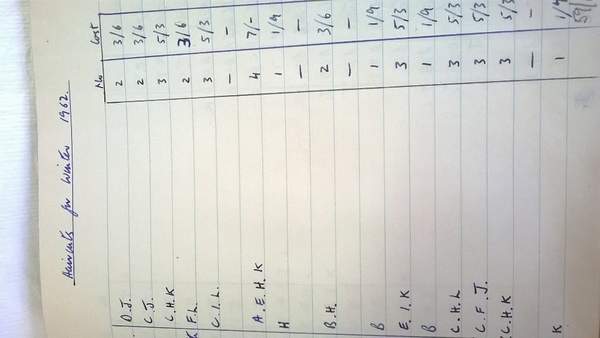 Haircuts for Winter 1962.
No Cost
D.J. 2 3/6
C.J. 2 3/6
C.H.K 3 5/3
F.L. 2 3/6
C.I.L. 3 5/3
— —
A.E.H.K 4 7/-
H 1 1/9
— —
B.H. 2 3/6
— —
B 1 1/9
E.I.K 3 5/3
B 1 1/9
C.H.L 3 5/3
C.F.J. 3 5/3
C.H.K 3 5/3
— —
K 1 1/9